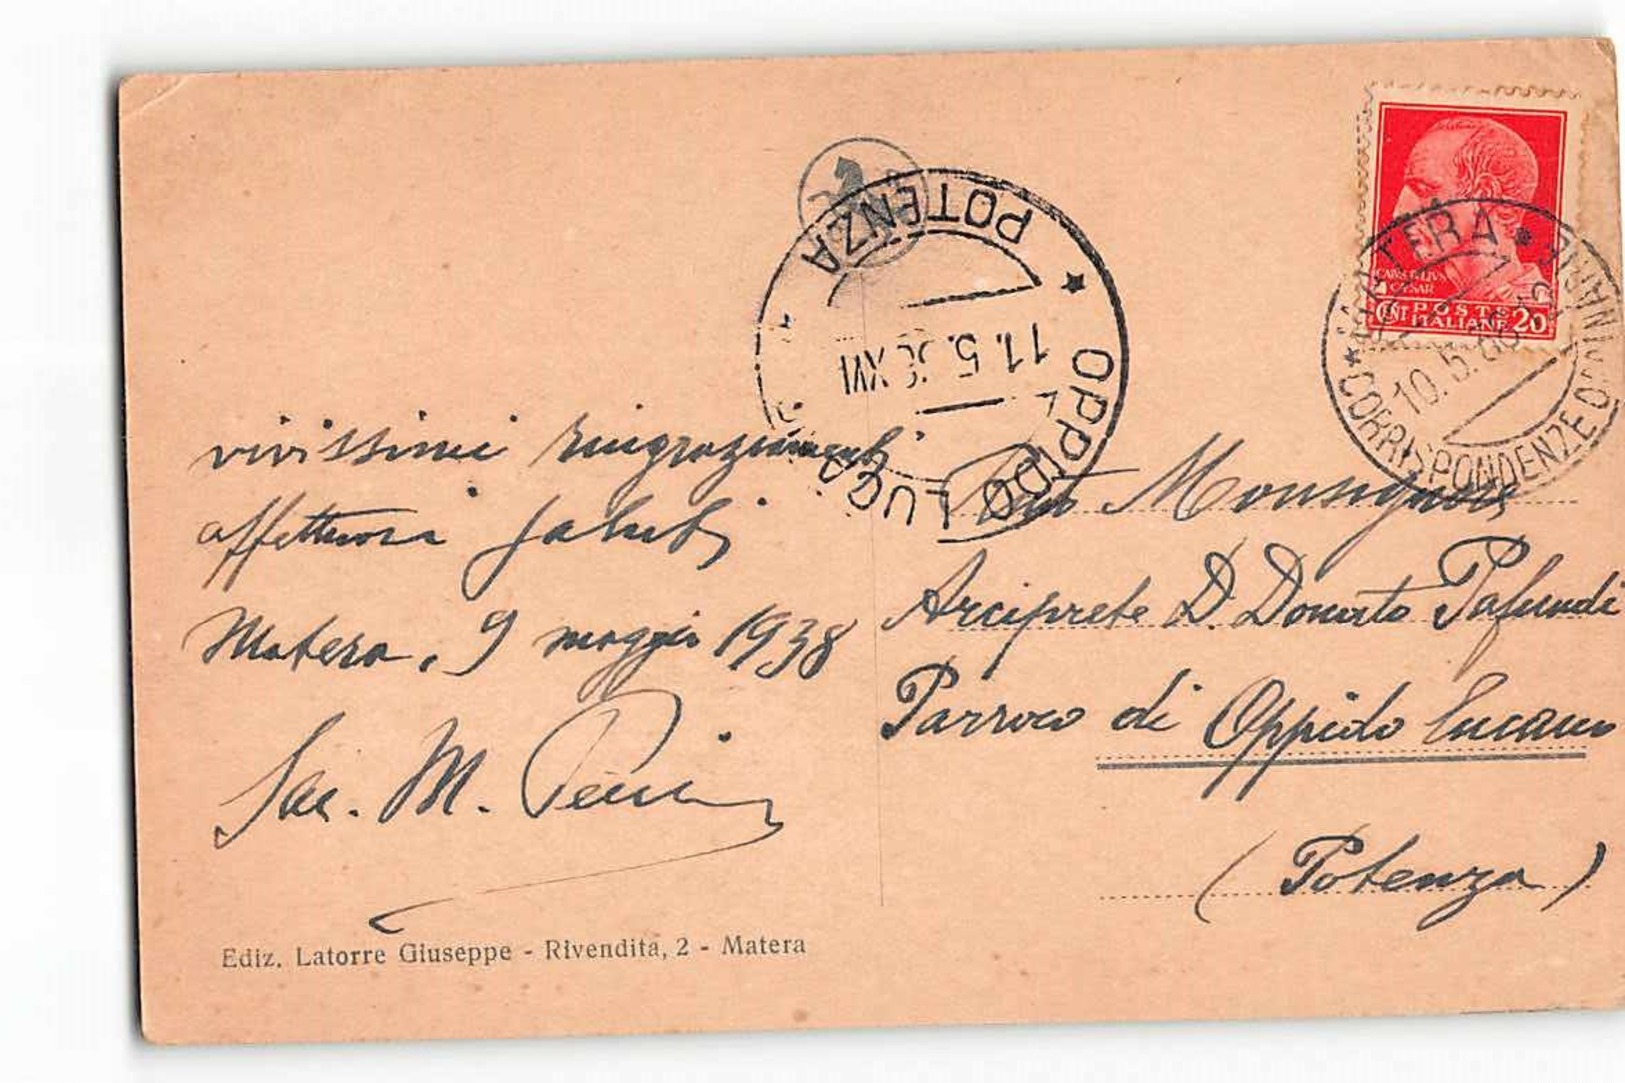 vivissimi ringraziamenti
affettuosi saluti
Matera, 9 maggio 1938
Sac. M.
Ediz. Latorre Giuseppe - Rivendita, 2 - Matera
POTENZA
11.5.38 XVI
* OPPIDO LUCANO *
CAIVS IVLIVS
CAESAR
CENT POSTE
ITALIANE 20
MATERA * CORRISPONDENZE ORDINARIE *
10.5.38
Monsignore
Arciprete D. Donato Pafundi
Parroco di Oppido Lucano
(Potenza)